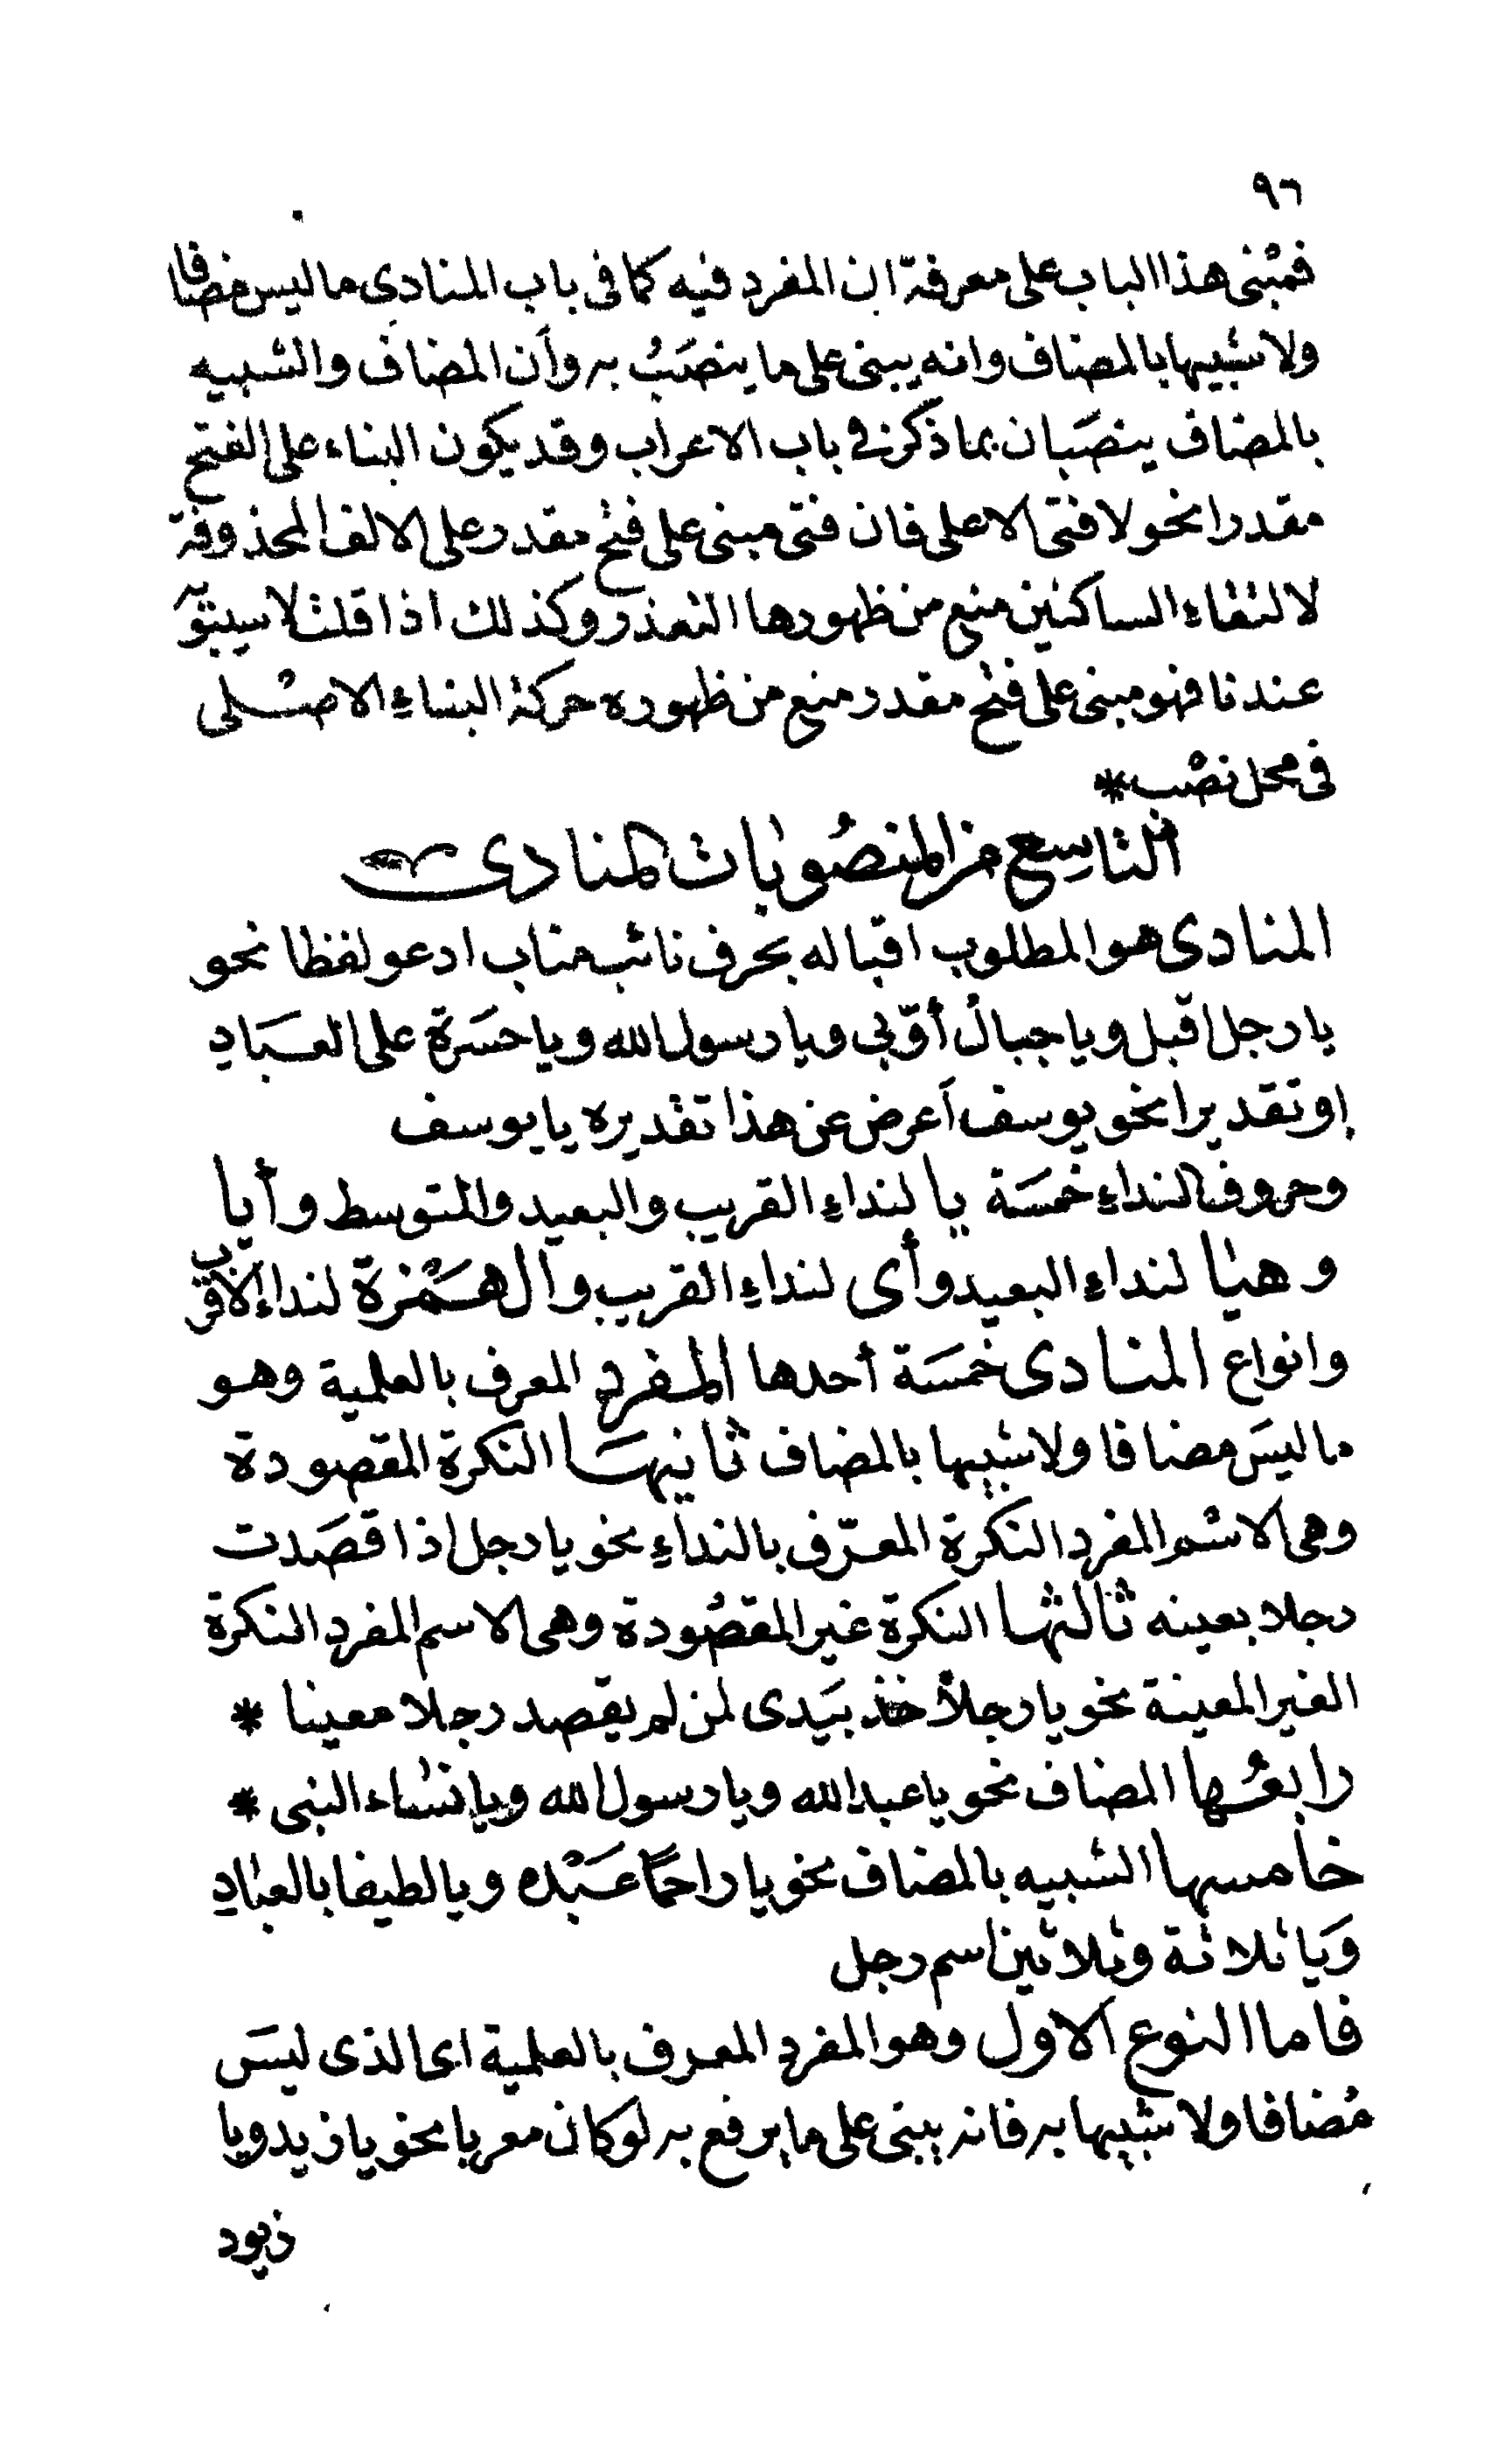 ٩٦
فمبْنى هذا الباب على معرفة ان المفرد فيه كما فى باب المنادى ما ليس مضافا
ولا شبيها بالمضاف وانه يبنى على ما ينصَبُ به وأن المضاف والشبيه
بالمضاف ينصَبان بما ذكر فى باب الاعراب وقد يكون البناء على الفتح
مقدرا نحو لا فتى الا على فان فتى مبنى على فتح مقدر على الالف المحذوفة
لالتقاء الساكنين منع من ظهورها التعذر وكذلك اذا قلت لا سيبويه
عندنا فهو مبنى على فتح مقدر منع من ظهوره حركة البناء الاصْلى
فى محل نصْب *
التاسع من المنصُوبات المنادى
المنادى هو المطلوب اقباله بحرف نائب مناب ادعو لفظا نحو
يا رجل اقبل ويا جبال أوّبى ويا رسول الله ويا حسَرة على العبَاد
او تقديرا نحو يوسف أعرض عن هذا تقديره يا يوسف
وحروف النداء خمسَة يا لنداء القريب والبعيد والمتوسط وأيا
وهيا لنداء البعيد وأى لنداء القريب والهمَزة لنداء الاقرب
وانواع المنادى خمسَة أحدها المفرد المعرف بالعلمية وهو
ما ليسَ مضافا ولا شبيها بالمضاف ثانيهَا النكرة المقصودة
وهى الاسْم المفرد النكرة المعرّف بالنداءِ نحو يا رجل اذا قصَدت
رجلا بعينه ثالثها النكرة غير المقصُودة وهى الاسم المفرد النكرة
الغير المعينة نحو يا رجلاً خذ بيَدى لمن لم يقصد رجلا معينا *
رابعُها المضاف نحو يا عبد الله ويا رسول الله ويا نسَاء النبى *
خامسها الشبيه بالمضاف نحو يا راحمًا عَبْده ويا لطيفا بالعبَادِ
وَيا ثلاثة وثلاثين اسم رجل
فاما النوع الاول وهو المفرد المعرف بالعلمية اى الذى ليسَ
مُضافا ولا شبيها به فانه يبنى على ما يرفع به لو كان معربا نحو يا زيد ويا
زيود